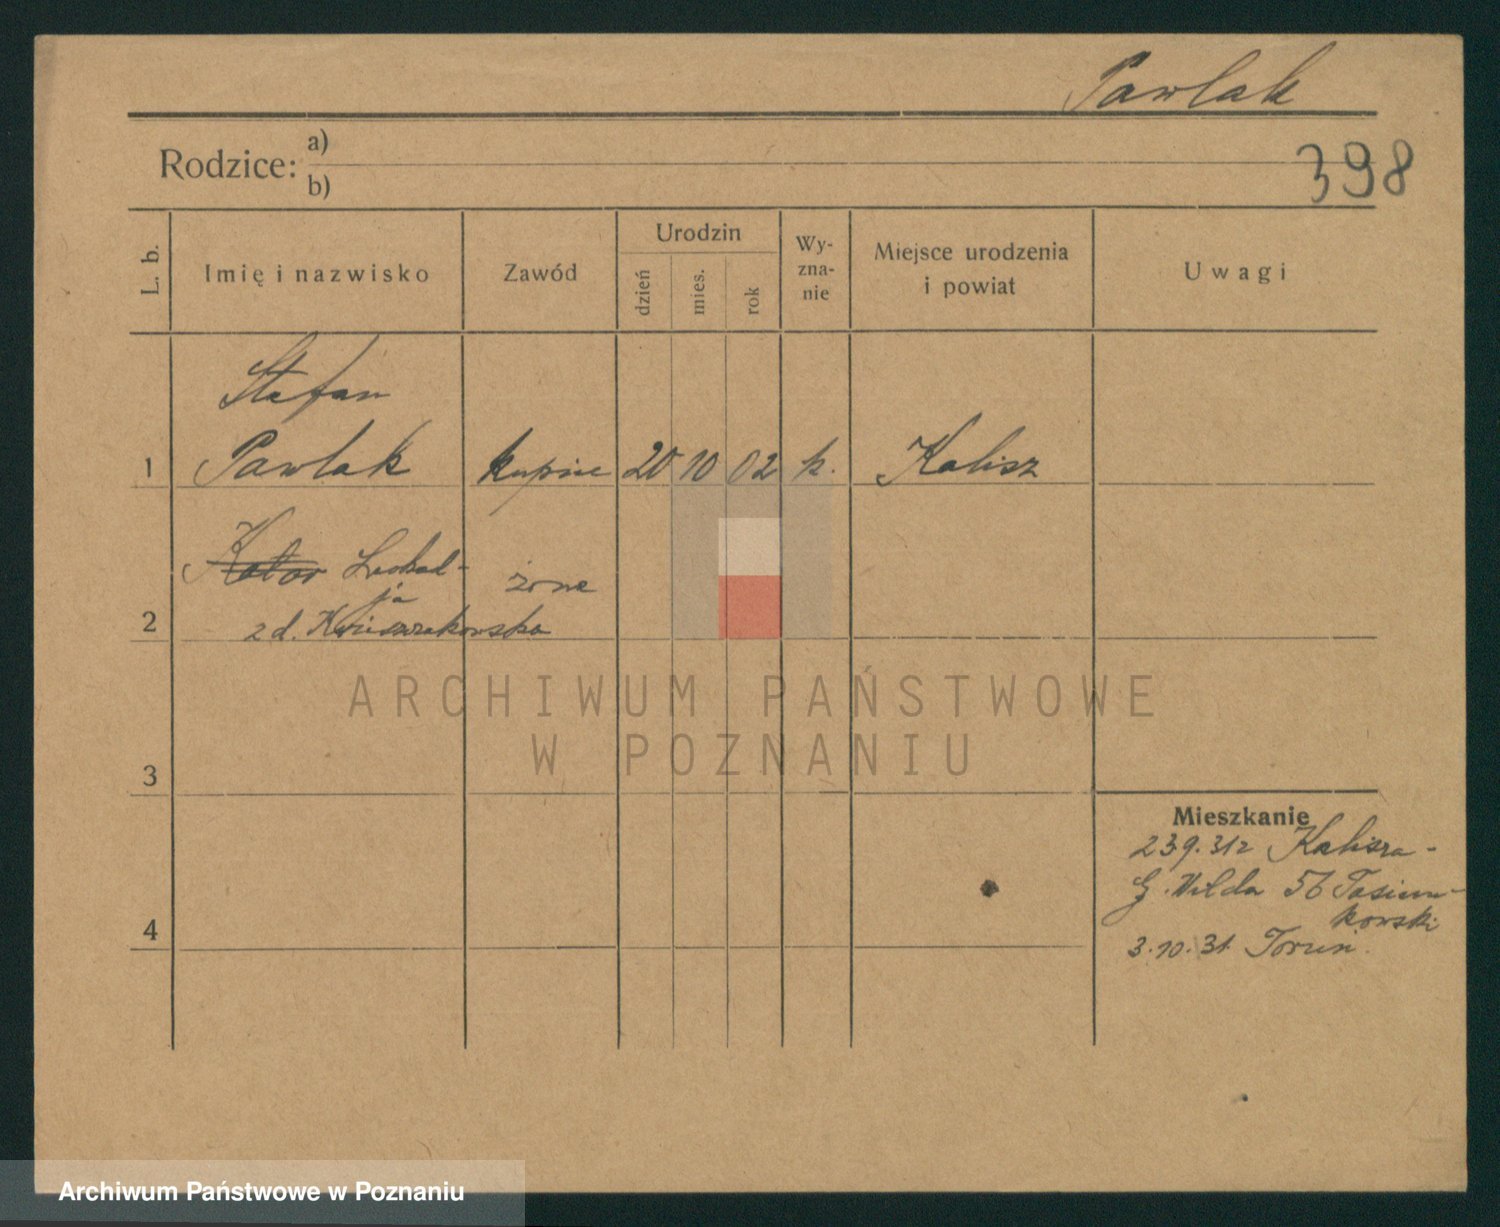 Pawlak
Rodzice: a)
b)
398
L. b.
Imię i nazwisko
Zawód
Urodzin
dzień
mies.
rok
Wy-
zna-
nie
Miejsce urodzenia
i powiat
Uwagi
Stefan
1 Pawlak kupiec 20 10 02 k. Kalisz
Leokad-
ja
żona
2 z d.
ARCHIWUM PAŃSTWOWE
W POZNANIU
3
Mieszkanie
23.9.31 z Kalisza -
G. Wilda 56
kowski
3.10.31. Toruń.
4
Archiwum Państwowe w Poznaniu